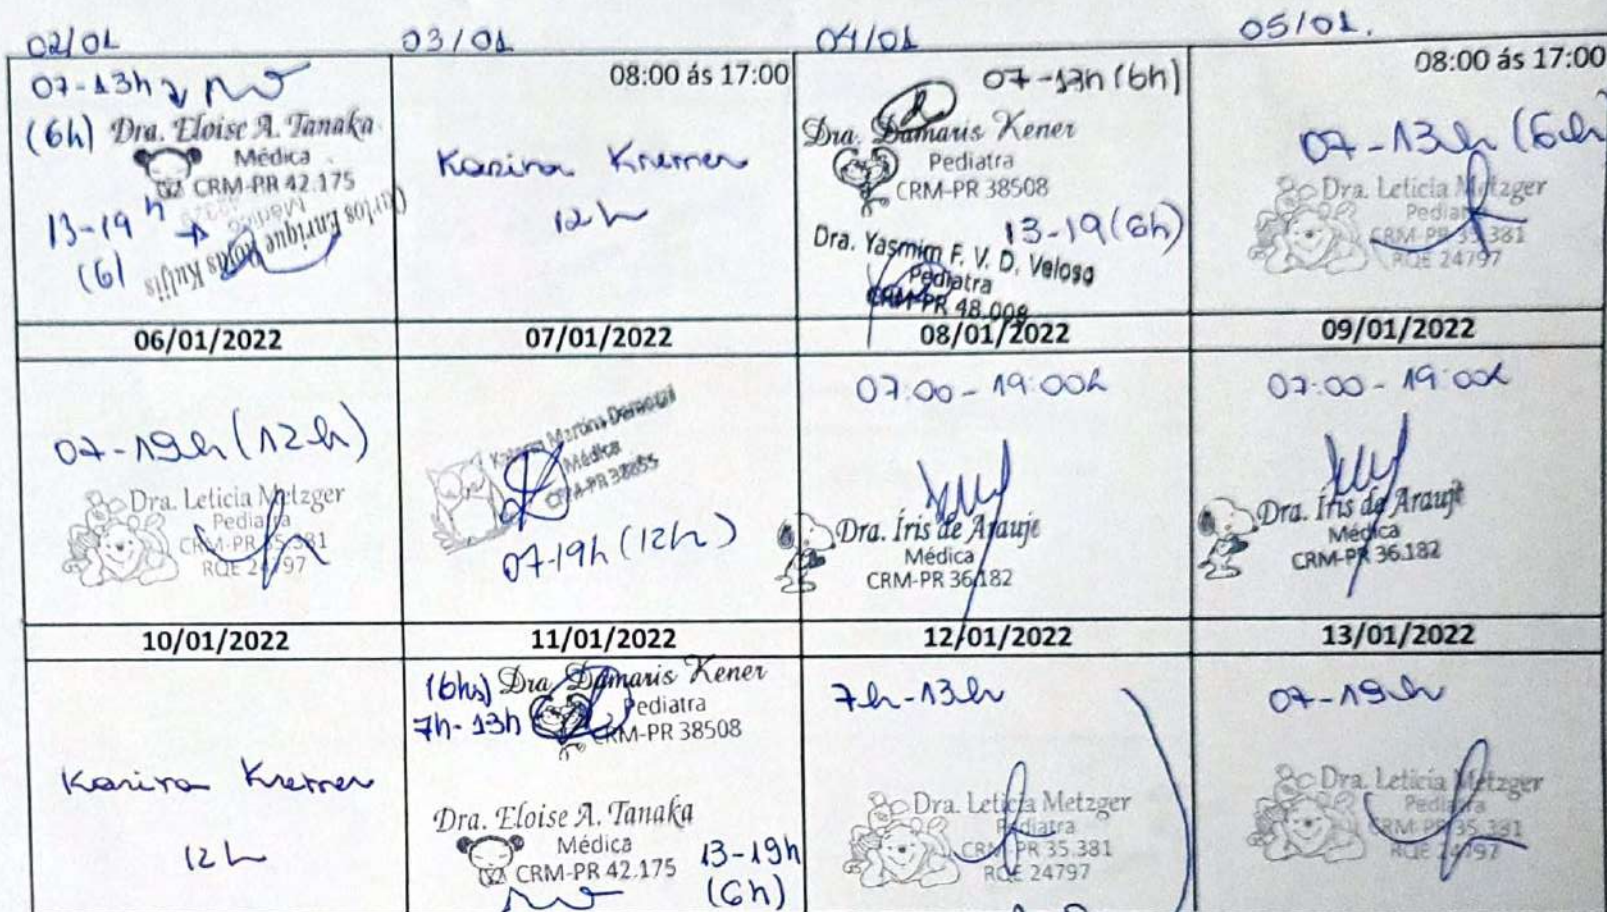 02/01
03/01
04/01
05/01.
07-13h
(6h) Dra. Eloise A. Tanaka
Médica
CRM-PR 42.175
13-19 h
(6)
Carlos Enrique Rojas Kuljis
Médico
08:00 ás 17:00
Karina Kremer
12h
07-13h (6h)
Dra. Damaris Kener
Pediatra
CRM-PR 38508
13-19 (6h)
Dra. Yasmim F. V. D. Veloso
Pediatra
CRM-PR 48.008
08:00 ás 17:00
07-13h (6h
Dra. Leticia Metzger
Pediatra
CRM-PR 35.381
RQE 24797
06/01/2022
07/01/2022
08/01/2022
09/01/2022
07-19h (12h)
Dra. Leticia Metzger
Pediatra
CRM-PR 35.381
RQE 24797
Martins
Médica
CRM-PR
07-19h (12h)
07:00 - 19:00h
Dra. Íris de Arauje
Médica
CRM-PR 36.182
07:00 - 19:00h
Dra. Íris de Arauje
Médica
CRM-PR 36.182
10/01/2022
11/01/2022
12/01/2022
13/01/2022
Karina Kremer
12h
(6hs) Dra. Damaris Kener
7h-13h
Pediatra
CRM-PR 38508
Dra. Eloise A. Tanaka
Médica
CRM-PR 42.175
13-19h
(6h)
7h-13h
Dra. Leticia Metzger
Pediatra
CRM-PR 35.381
RQE 24797
07-19h
Dra. Leticia Metzger
Pediatra
CRM-PR 35.381
RQE 24797